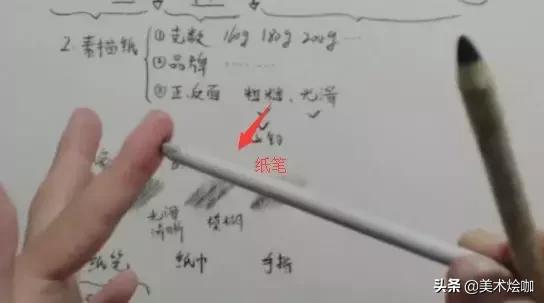 2. 素描纸
① 克数 160g 180g 200g ...
② 品牌 ......
③ 正反面 粗糙、光滑
纸笔
光滑 模糊
清晰
纸笔 纸巾 手指
头条 @美术烩咖